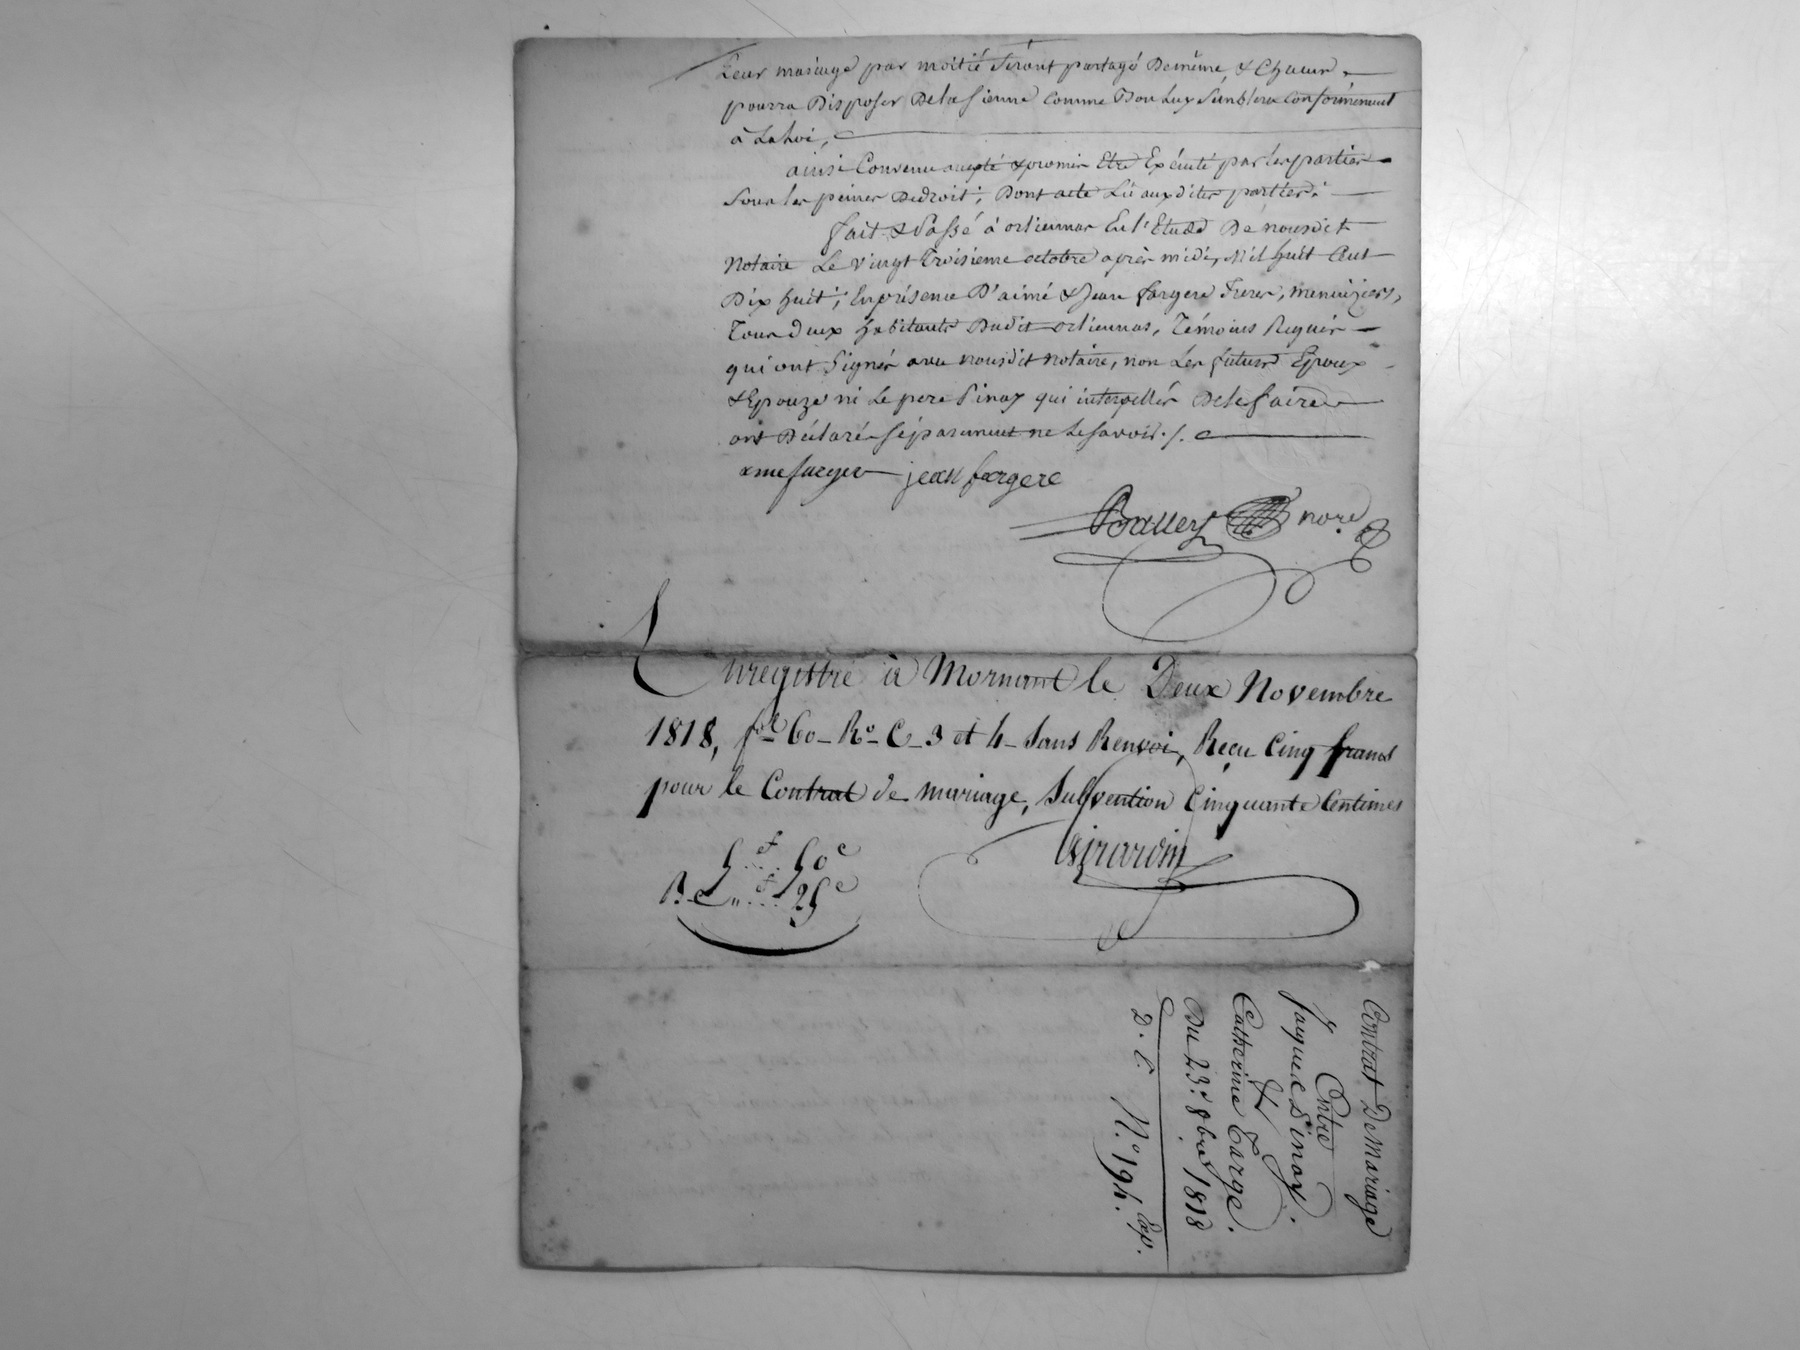 Leur mariage par moitié seront partagé de même, & Chacun
pourra Disposer De la sienne Comme Bon Luy Semblera Conformément
à La Loi,
ainsi Convenu accepté & promis Etre Exécuté par les parties
Sous les peines De droit; Dont acte Lû aux dites parties.
fait & Passé à orlienas En l'Etude De nousdit
Notaire Le vingt Troisieme octobre après midi, Mil huit Cent
Dix huit; En présence D'aimé & Jean fargere Freres, menuiziers,
Tous deux habitants Dudit orlienas, Témoins Requis
qui ont Signés avec nousdit notaire, non Les futurs Epoux
& Epouze ni Le pere Pinay qui interpellés De le faire
ont Déclaré séparement ne Le savoir./.
aime fargere jean fargere
nore
Enregistré à Mornant le Deux Novembre
1818, fol 60 Ro C 3 et 4 Sans Renvoi, Reçu Cinq francs
pour le Contrat de mariage, Subvention Cinquante Centimes
Girardin
5f 50c
R. e " f 25c
Contrat De Mariage
Entre
Jaques Pinay.
&
Catherine Targe.
Du 23e 8bre 1818
D. C. N.o 194. Exp.